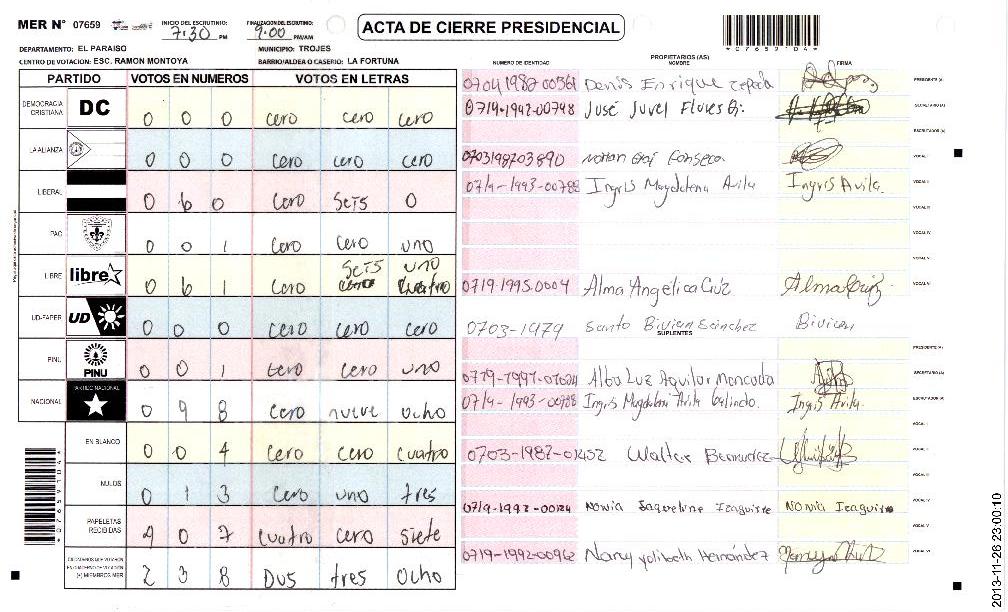 MER N° 07659 INICIO DEL ESCRUTINIO: 7:30 PM FINALIZACION DEL ESCRUTINIO: 9:00 PM/AM
ACTA DE CIERRE PRESIDENCIAL
*07659104*
DEPARTAMENTO: EL PARAISO MUNICIPIO: TROJES
CENTRO DE VOTACION: ESC. RAMON MONTOYA BARRIO/ALDEA O CASERIO: LA FORTUNA
NUMERO DE IDENTIDAD PROPIETARIOS (AS) NOMBRE FIRMA
PARTIDO VOTOS EN NUMEROS VOTOS EN LETRAS
DEMOCRACIA CRISTIANA DC 0 0 0 cero cero cero
LA ALIANZA 0 0 0 cero cero cero
LIBERAL 0 6 0 cero seis 0
PAC 0 0 1 cero cero uno
seis uno
LIBRE libre 0 6 1 cero
UD-FAPER UD 0 0 0 cero cero cero
PINU PINU 0 0 1 cero cero uno
NACIONAL PARTIDO NACIONAL 0 9 8 cero nueve ocho
EN BLANCO 0 0 4 cero cero cuatro
NULOS 0 1 3 cero uno tres
PAPELETAS RECIBIDAS 4 0 7 cuatro cero siete
CIUDADANOS QUE VOTARON EN CUADERNO DE VOTACION (+) MIEMBROS MER 2 3 8 Dos tres ocho
*07659104*
Denis Enrique PRESIDENTE (A)
0719-1942-00748 José Juvel Flores SECRETARIO (A)
ESCRUTADOR (A)
0703198703890 Fonseca VOCAL I
0719-1993-00788 Ingris Magdalena Avila Ingris Avila. VOCAL II
VOCAL III
VOCAL IV
VOCAL V
0719-1995-0004 Alma Angelica Cruz Alma Cruz VOCAL VI
0703-1979 Santo Bivian Sanchez Bivian
SUPLENTES
PRESIDENTE (A)
Alba Luz Aguilar Moncada SECRETARIO (A)
0719-1993-00788 Ingris Magdaleni Avila Galindo. Ingris Avila. ESCRUTADOR (A)
VOCAL I
0703-1987-01432 Walter Bermudez VOCAL II
VOCAL III
0719-1992-00124 Izaguirre Izaguirre VOCAL IV
VOCAL V
0719-1992-00962 Nancy Hernández VOCAL VI
2013-11-26 23:00:10